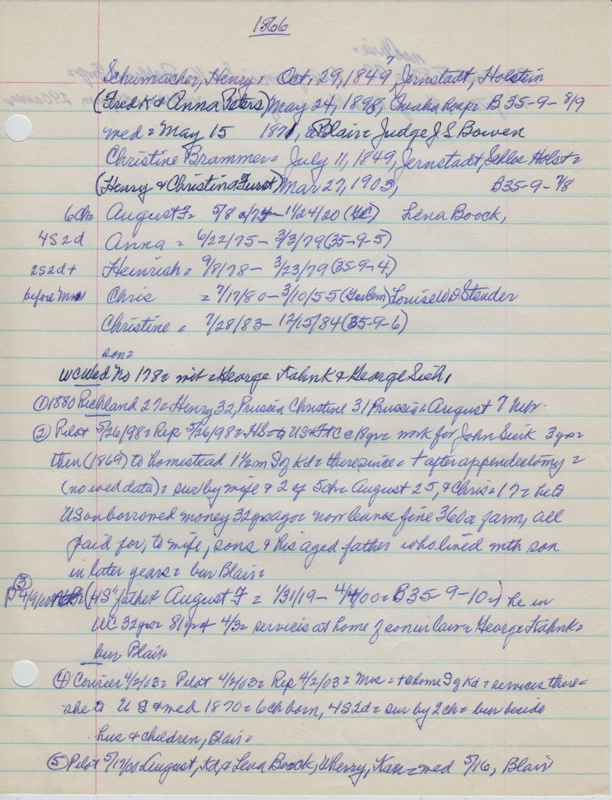 1866
Schumacher, Henry = Oct. 29, 1849, Jernstadt, Holstein
(Fred K & Anna Peters) May 24, 1898, B 35-9-8/9
med = May 15 1871, Blair = Judge J S Bowen
Christine Brammer = July 11, 1849, Jernstadt, Holst =
(Henry & Christina Furst) Mar 27, 1903, B35-9-7/8
6 Ch = August F = 5/8 - 1/24/20 Lena Boock,
4S2d Anna = 6/22/75 - 3/3/79 (35-9-5)
2s2d + Heinrich = 9/8/78 - 3/23/79 (35-9-4)
before Chris = 7/17/80 - 3/10/55 Louise W D Stender
Christine = 7/28/83 - 12/15/84 (35-9-6)
son =
WC Wed No 178 = wit = George Kahnk & George Sick,
① 1880 Richland 27 = Henry 32, Prussia Christine 31 Prussia & August 7 Nebr.
② Pilot 5/26/98 = Rep 5/26/98 = work for John Sierk 3 yrs =
then (1869) to homestead 1½ m S of Kd = there since = + after appendectomy =
(no wed data) = sur by wife & 2 of 5 ch = August 25, & Chris = 17 = he to
US on borrowed money 32 yrs ago = now leaves fine 360 a farm, all
paid for, to wife, sons & his aged father who lived with son
in later years = bur Blair =
③ P 4/9/00 father August F = 1/31/19 - 4/4/00 = B35-9-10 = he in
WC 32 yrs = 81 yrs + 4/3 = services at home of son in law = George Kahnk =
bur Blair
④ Courier 4/2/03 = Pilot 4/2/03 = Rep 4/2/03 = Mrs = + @ home S of Kd = services there =
she to U S & med 1870 = 6 ch born, 4S2d = sur by 2 ch = bur beside
hus & children, Blair =
⑤ Pilot 5/17/00 August, Kd, & Lena Boock, Wherry, Kan = med 5/16, Blair